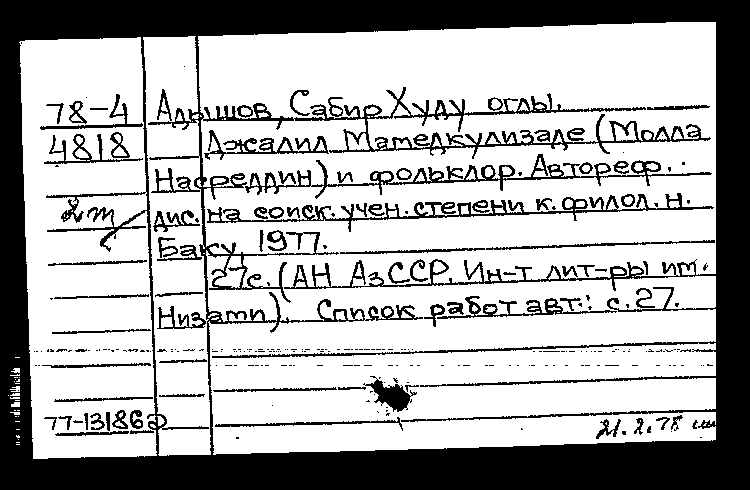 78-4 Адышов, Сабир Худу оглы.
4818 Джалил Мамедкулизаде (Молла
Насреддин) и фольклор. Автореф.
дис. на соиск. учен. степени к. филол. н.
Баку, 1977.
27с. (АН АзССР. Ин-т лит-ры им.
Низами). Список работ авт.: с. 27.
77-13186
21.2.78